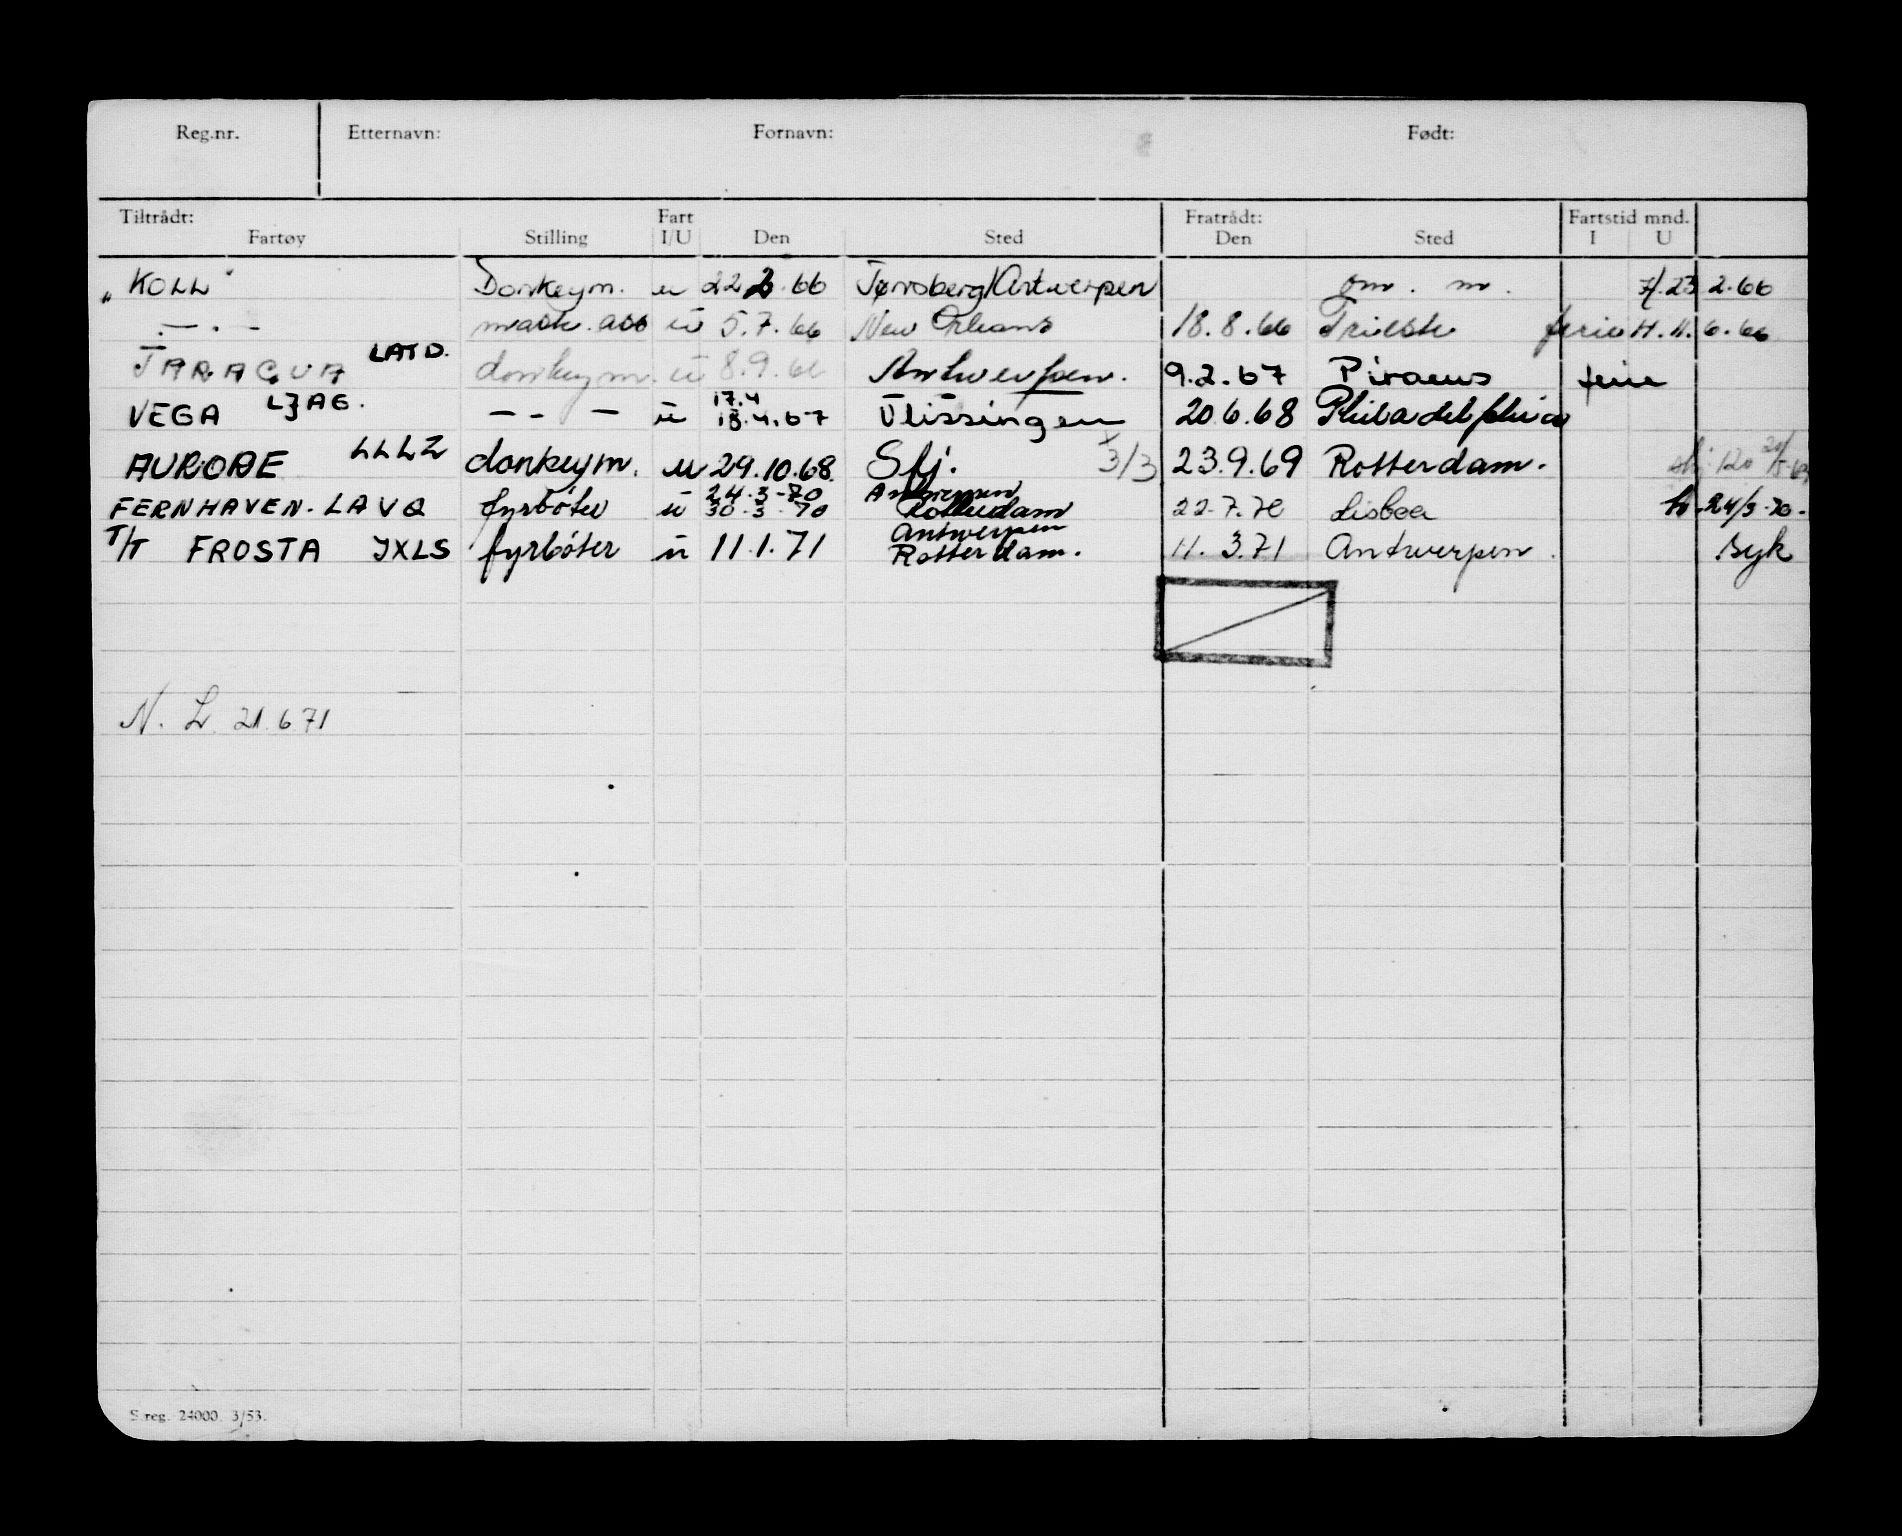 Reg.nr. Etternavn: Fornavn: Født:
Tiltrådt: Fart Fratrådt: Fartstid mnd.
Fartøy Stilling I/U Den Sted Den Sted I U
"KOLL" Donkeym. u 22 2.66 Tønsberg/Antwerpen om. m. 7/.23 2.66
— . — mask. ass ū 5.7.66 New Orleans 18.8.66 Trieste ferie H. 11. 6.66
LATD.
TARAGUA donkeym. ū 8.9.66 Antwerpen. 9.2.67 Piraeus ferie
LJAG. 17.4
VEGA — - — ū 18.4.67 Vlissingen 20.6.68 Philadelphia
AURORE LLLZ donkeym. u 29.10.68. Sfj. 3/3 23.9.69 Rotterdam.
24.3-70 Antwerpen
FERNHAVEN. LAVQ fyrbøter ū 30.3-70 Rotterdam 22.7.70 Lisboa h. 24/3-70.
Antwerpen
T/T FROSTA JXLS fyrbøter ū 11.1.71 Rotterdam. 11.3.71 Antwerpen. syk
N. L. 21.6.71
S.reg. 24000. 3/53.